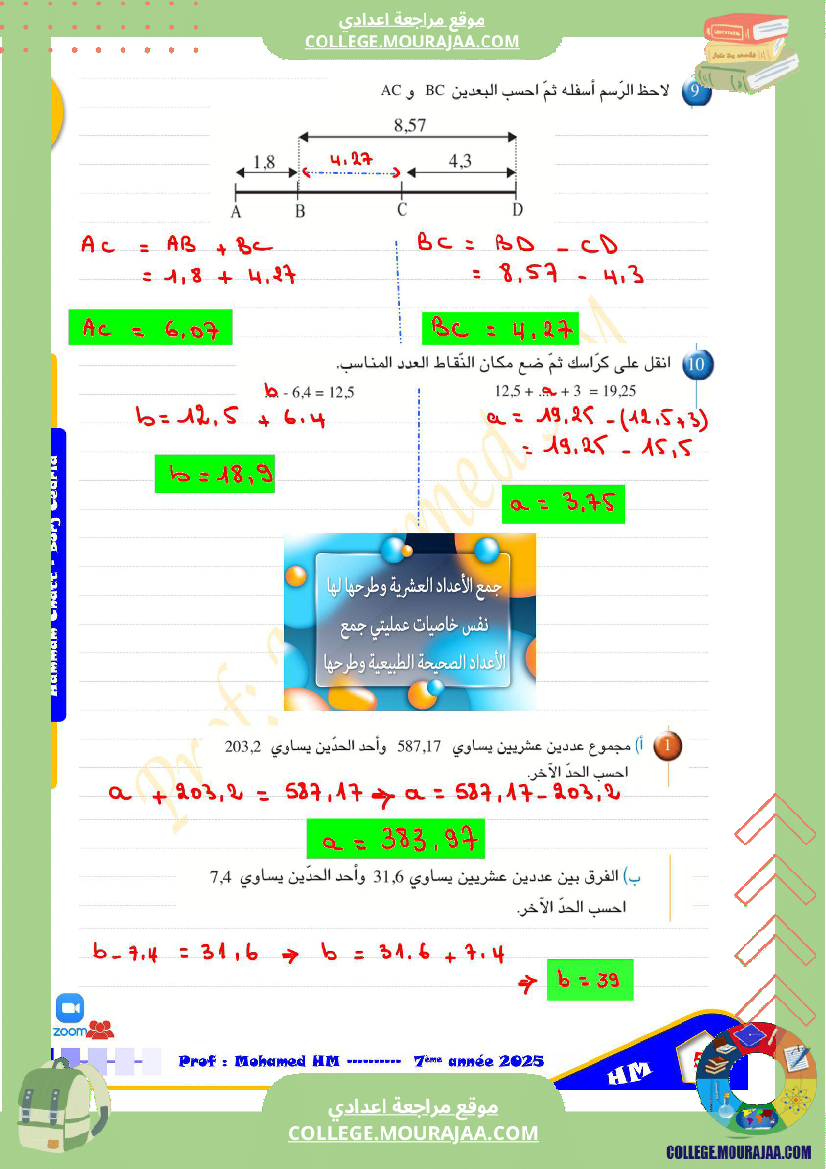 موقع مراجعة اعدادي
COLLEGE.MOURAJAA.COM
9 لاحظ الرّسم أسفله ثمّ احسب البعدين BC و AC
8,57
1,8 4.27 4,3
A B C D
AC = AB + BC
= 1,8 + 4,27
AC = 6,07
BC = BD - CD
= 8,57 - 4,3
BC = 4,27
10 انقل على كرّاسك ثمّ ضع مكان النّقاط العدد المناسب.
b - 6,4 = 12,5
b = 12,5 + 6.4
b = 18,9
12,5 + ..a. + 3 = 19,25
a = 19,25 - (12,5+3)
= 19,25 - 15,5
a = 3,75
جمع الأعداد العشرية وطرحها لها
نفس خاصيات عمليتي جمع
الأعداد الصحيحة الطبيعية وطرحها
1 أ) مجموع عددين عشريين يساوي 587,17 وأحد الحدّين يساوي 203,2
احسب الحدّ الآخر.
a + 203,2 = 587,17 → a = 587,17 - 203,2
a = 383,97
ب) الفرق بين عددين عشريين يساوي 31,6 وأحد الحدّين يساوي 7,4
احسب الحدّ الآخر.
b - 7.4 = 31,6 → b = 31.6 + 7.4
→ b = 39
zoom
Prof : Mohamed HM ---------- 7ème année 2025
HM
موقع مراجعة اعدادي
COLLEGE.MOURAJAA.COM
COLLEGE.MOURAJAA.COM